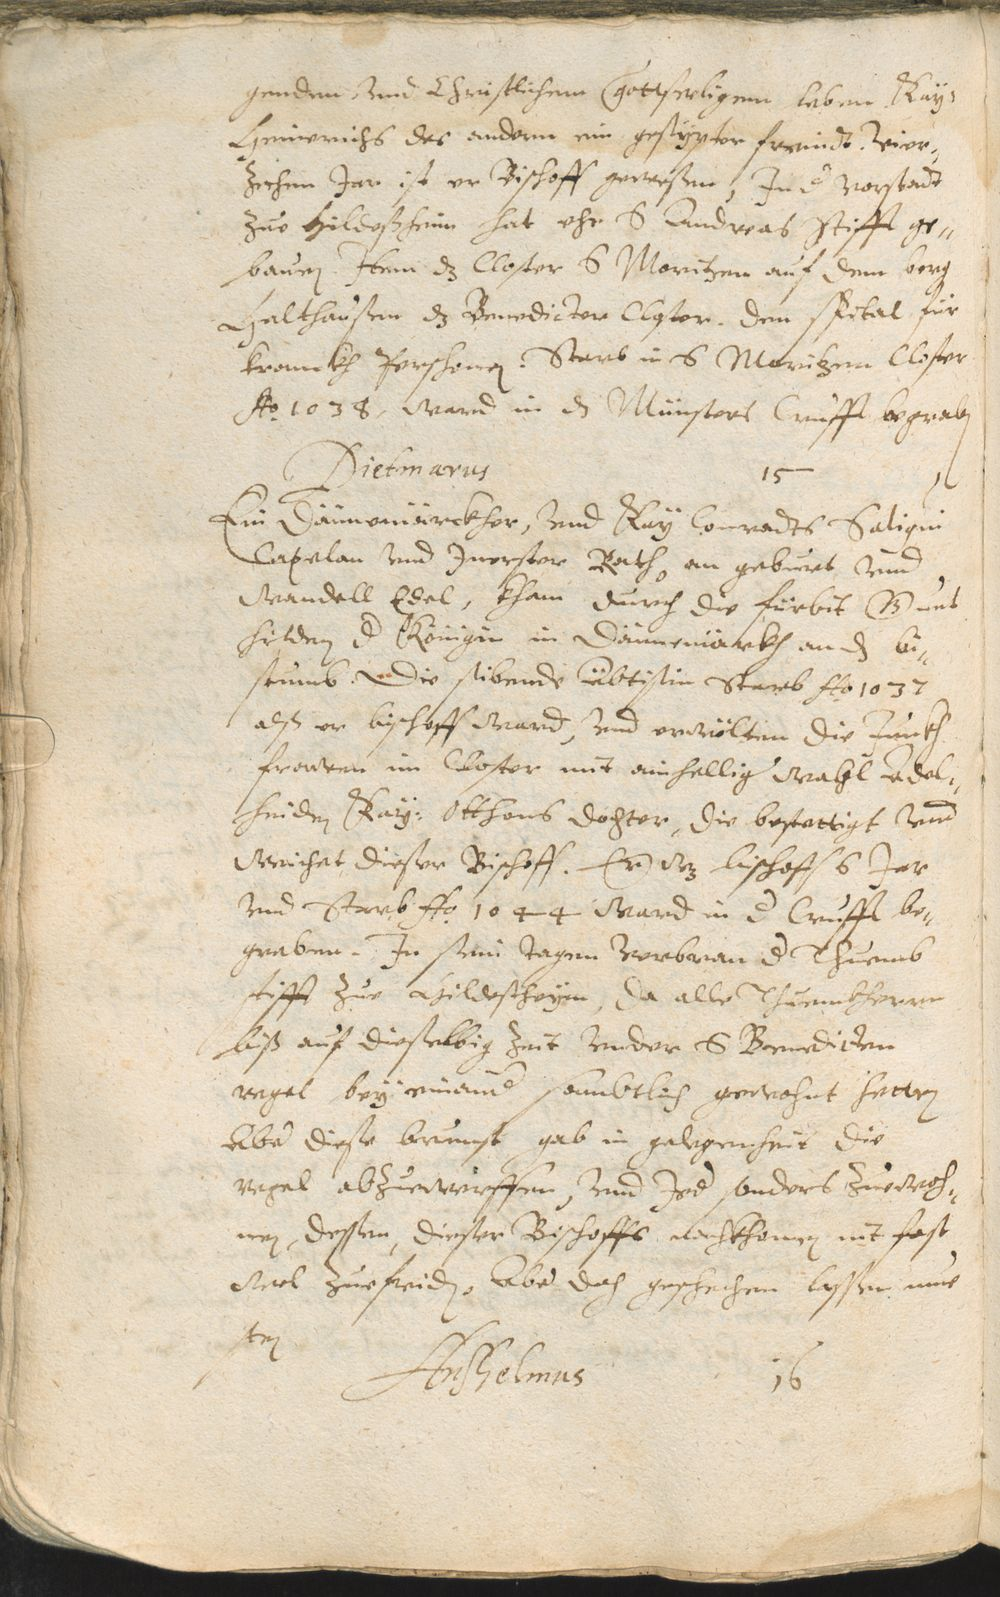 genden vnd Christlichem Gottseeligem leben Kay:
Heinrichs des andern ein gehaymer freündt. Vier„
zechen Jar ist er Bischoff gewessen, In d' vorstadt
zue Hildeßheim hat ehr S Andreas Stifft ge„
bauen. Item dz Closter S Moritzen auf dem berg
Halthaußen dz Benedicter Closter. den spital für
kranckh Persohnen. Starb in S Moritzen Closter
Ao 1038, ward in ds Münsters Crufft begraben
Dietmarus 15
Ein Dännemärckher, vnd Kay Conradts Saliqui
Capelan vnd Inerster Rath, an geburt vnd
Wandell Edel, kham durch die fürbit Gunt
hilden d' Königin in Dännemarckh an ds bi„
stumb. Die sibende äbtissin Starb Ao 1037
alß er bischoff ward, vnd erwölten die Junckh
frawen im Closter mit einhellig' wahl Adel„
heiden Kay: Otthons dochter, die bestettigt vnd
Weichet dießer Bischoff. Er wz bischoff 6 Jar
vnd Starb Ao 1044 ward in d' Crufft be„
graben. In sein tagen verbran d' Thuemb
stifft zue Hildeßheym, da alle Thuembherrn
biß auf dieselbig Zeit vnder S Benedicten
regel bey einand' sambtlich gewohnt hetten
Aber dieße brunst gab in gelegenheit die
regel abzuewerffen, vnd Jed' sonders zuewoh„
nen, dessen, dießer Bischoffs nachkhomen nit fast
wol zuefriden, Aber doch geschechen lassen mue
sten
Anßhelmus 16